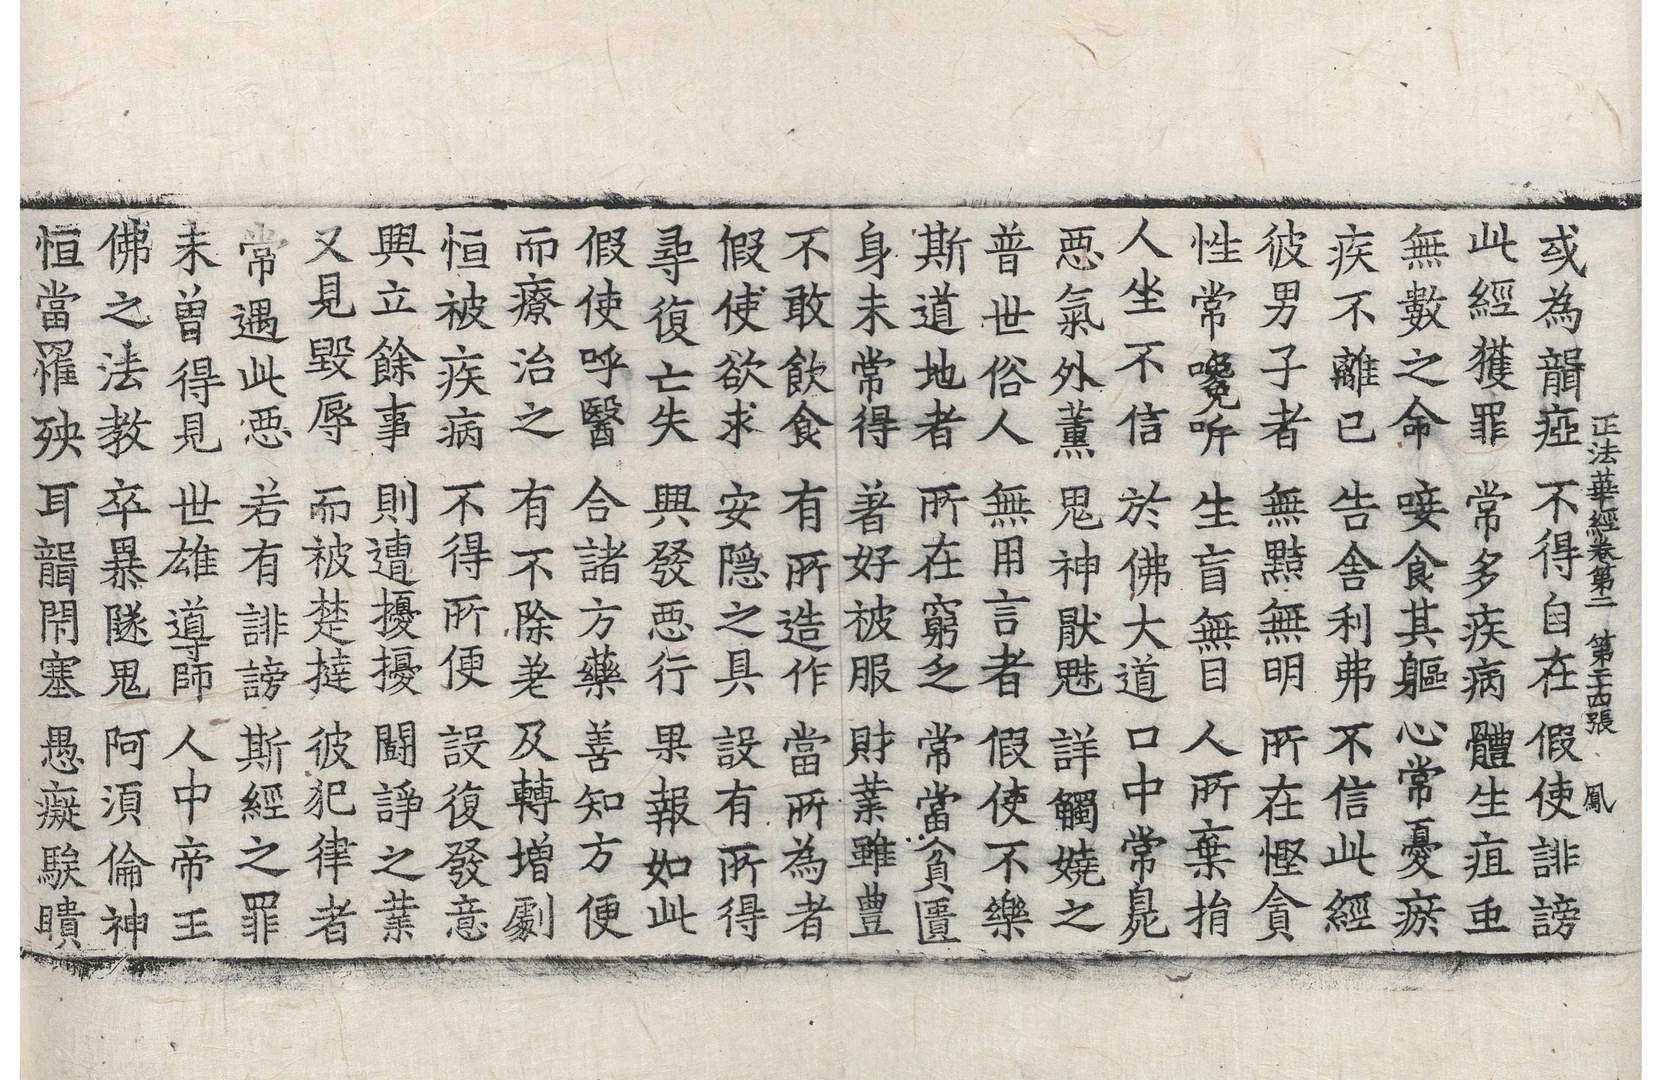 正法華經卷第二 第二十四張 鳳
或為聾瘂 不得自在 假使誹謗
此經獲罪 常多疾病 體生疽虫
無數之命 唼食其軀 心常憂瘀
疾不離已 告舍利弗 不信此經
彼男子者 無黠無明 所在慳貪
性常嚵吩 生盲無目 人所棄捐
人坐不信 於佛大道 口中常臭
惡氣外薰 鬼神厭魅 詳觸嬈之
普世俗人 無用言者 假使不樂
斯道地者 所在窮乏 常當貧匱
身未常得 著好被服 財業雖豊
不敢飲食 有所造作 當所為者
假使欲求 安隐之具 設有所得
尋復亡失 興發惡行 果報如此
假使呼醫 合諸方藥 善知方便
而療治之 有不除差 及轉增劇
恒被疾病 不得所便 設復發意
興立餘事 則遭擾擾 鬪諍之業
又見毀辱 而被楚撻 彼犯律者
常遇此惡 若有誹謗 斯經之罪
未曾得見 世雄導師 人中帝王
佛之法教 卒暴隧鬼 阿須倫神
恒當罹殃 耳聾閉塞 愚癡騃瞶